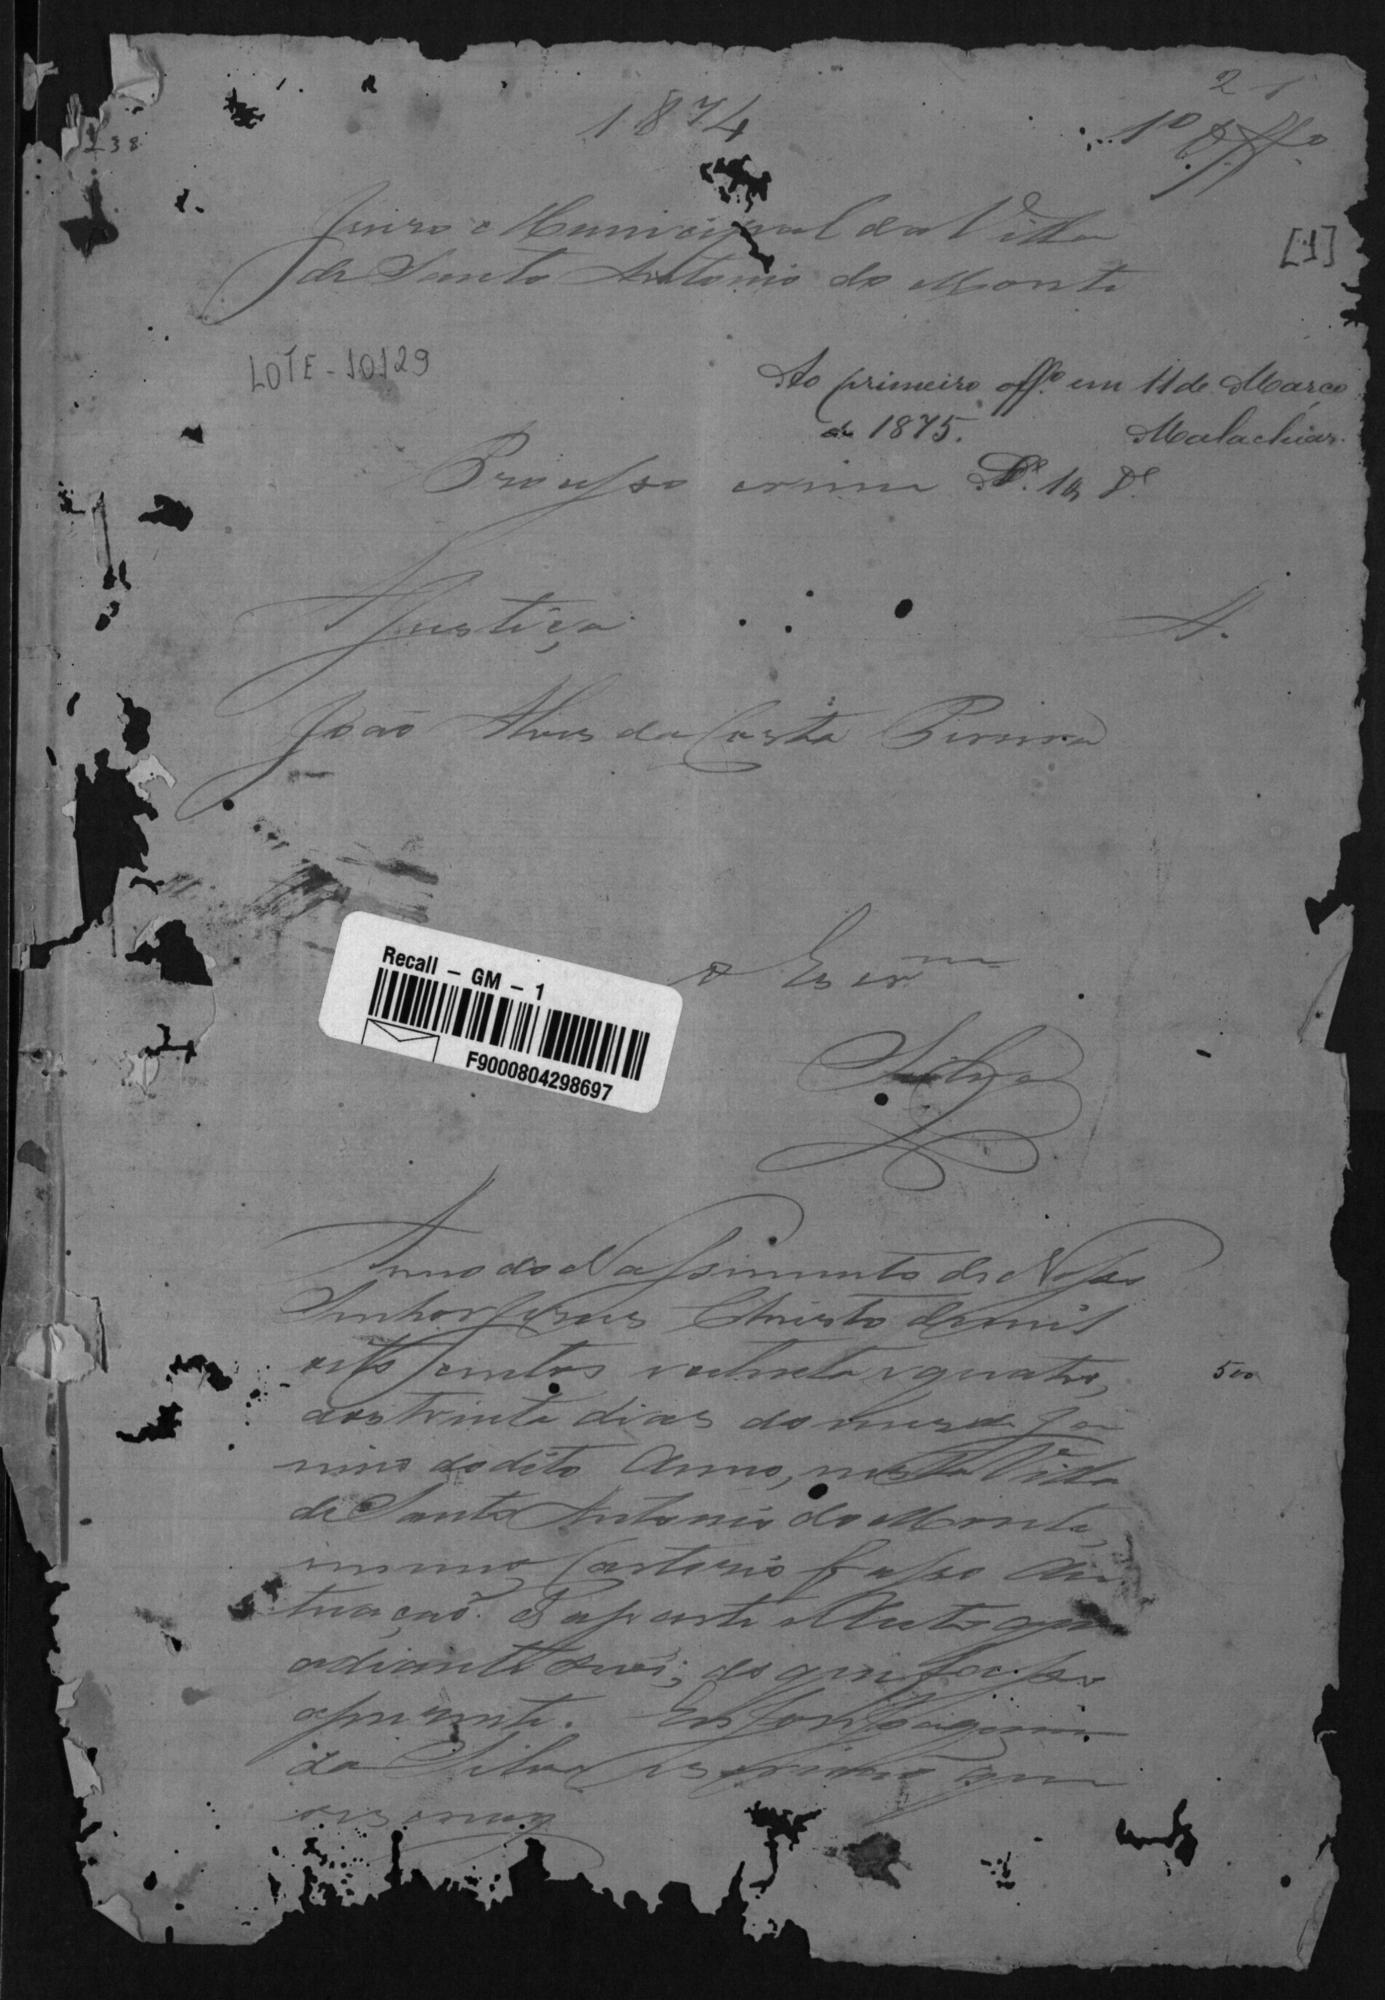 2 1
1874
1º Offº
238
Juizo Municipal da Villa
de Santo Antonio do Monte
[1]
LOTE - 10129
Ao primeiro offº em 11 de Março
de 1875. Malachias.
Processo crime
Justiça A.
João Alves da Costa Pereira
O Escr.m
Silva
Recall - GM - 1
F9000804298697
Anno do Nascimento de Nosso
Senhor Jesus Christo de mil
oito centos e setenta e quatro,
500
aos trinta dias do mes de Ja
neiro do dito Anno, nesta Villa
de Santo Antonio do Monte,
em meu Cartorio faço au
tuação
adiante se vê; do que faço
a presente. Eu
da Silva Escrivão que
escrevy